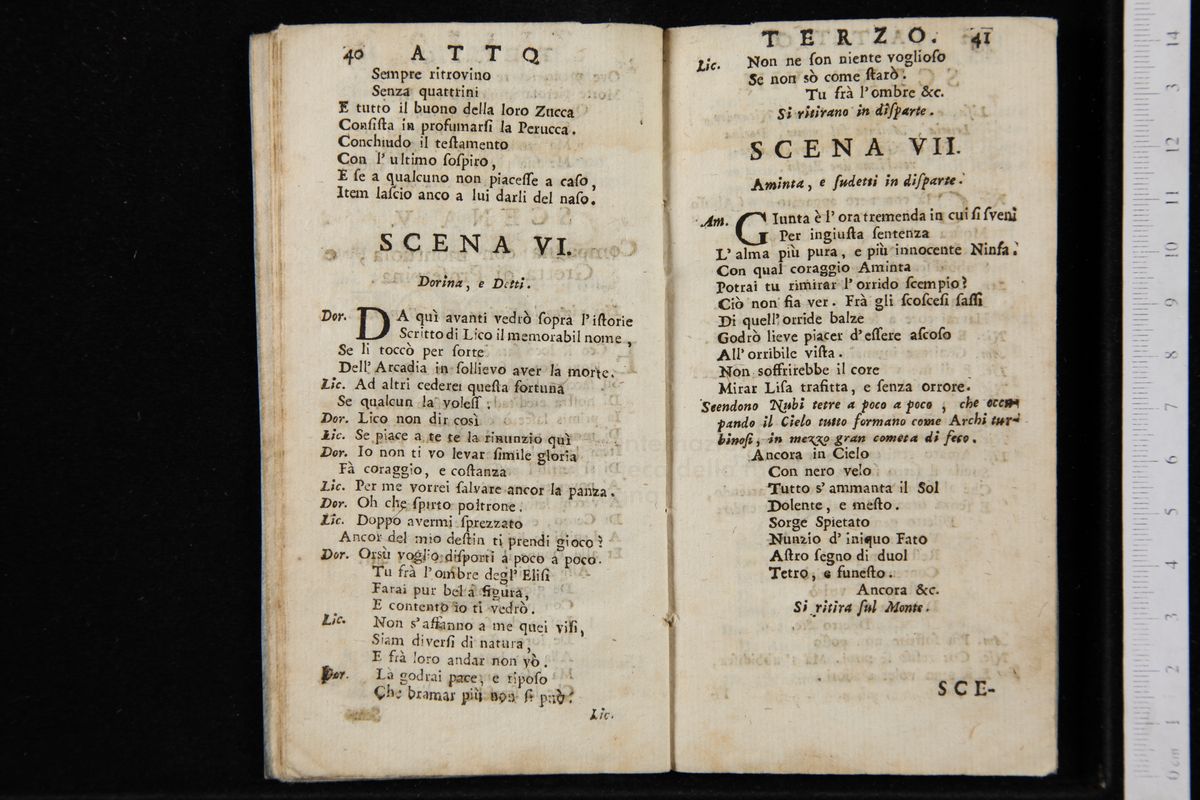 40 ATTO
Sempre ritrovino
Senza quattrini
E tutto il buono della loro Zucca
Conſiſta in profumarſi la Perucca.
Conchiudo il teſtamento
Con l' ultimo ſoſpiro,
E ſe a qualcuno non piaceſſe a caſo,
Item laſcio anco a lui darli del naſo.
SCENA VI.
Dorina, e Detti.
Dor. DA quì avanti vedrò ſopra l'iſtorie
Scritto di Lico il memorabil nome,
Se li toccò per ſorte
Dell' Arcadia in ſollievo aver la morte.
Lic. Ad altri cederei queſta fortuna
Se qualcun la voleſſ.
Dor. Lico non dir così
Lic. Se piace a te te la rinunzio quì
Dor. Io non ti vo levar ſimile gloria
Fà coraggio, e coſtanza
Lic. Per me vorrei ſalvare ancor la panza.
Dor. Oh che ſpirto poltrone.
Lic. Doppo avermi ſprezzato
Ancor del mio deſtin ti prendi gioco?
Dor. Orsù voglio diſporti à poco à poco.
Tu frà l'ombre degl' Eliſi
Farai pur bella figura,
E contento io ti vedrò.
Lic. Non s'affanno a me quei viſi,
Siam diverſi di natura,
E frà loro andar non vò.
Dor. Là godrai pace, e ripoſo
Che bramar più non ſi può.
Lic.
TERZO. 41
Lic. Non ne ſon niente voglioſo
Se non sò come ſtarò.
Tu frà l'ombre &c.
Si ritirano in diſparte.
SCENA VII.
Aminta, e ſudetti in diſparte.
Am. GIunta è l' ora tremenda in cui ſi ſveni
Per ingiuſta ſentenza
L' alma più pura, e più innocente Ninfa.
Con qual coraggio Aminta
Potrai tu rimirar l'orrido ſcempio?
Ciò non fia ver. Frà gli ſcoſceſi ſaſſi
Di quell' orride balze
Godrò lieve piacer d'eſſere aſcoſo
All' orribile viſta.
Non soffrirebbe il core
Mirar Liſa trafitta, e ſenza orrore.
Scendono Nubi tetre a poco a poco, che occu-
pando il Cielo tutto formano come Archi tur-
binoſi, in mezzo gran cometa di foco.
Ancora in Cielo
Con nero velo
Tutto s' ammanta il Sol
Dolente, e meſto.
Sorge Spietato
Nunzio d' iniquo Fato
Aſtro ſegno di duol
Tetro, e funeſto.
Ancora &c.
Si ritira ſul Monte.
SCE-